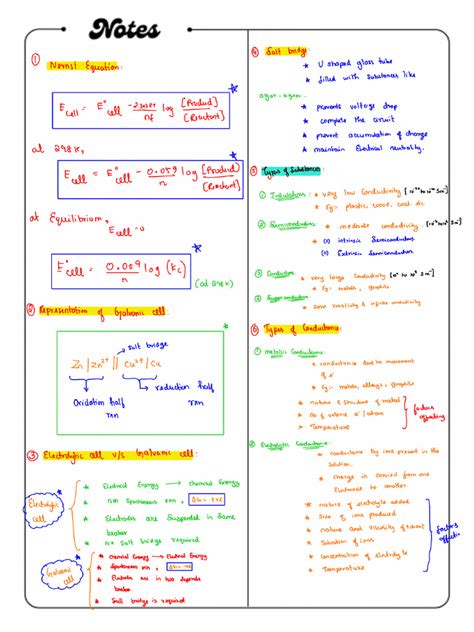 Notes
① Nernst Equation:
E cell = E° cell - 2.303RT/nF log [Product]/[Reactant]
at 298K,
E cell = E° cell - 0.059/n log [Product]/[Reactant]
at Equilibrium,
E cell = 0
E° cell = 0.059/n log (Kc)
(at 298K)
② Representation of Galvanic cell:
salt bridge
Zn | Zn2+ || Cu2+ | Cu
Oxidation half rxn
reduction half rxn
③ Electrolytic cell v/s Galvanic cell:
Electrolytic cell
* Electrical Energy → chemical Energy
* non Spontaneous rxn, ΔG = +ve
* Electrodes are Suspended in Same
beaker
* No Salt bridge required
Galvanic cell
* Chemical Energy → Electrical Energy
* Spontaneous rxn, ΔG = -ve
* Electrodes are in two
beaker
* Salt bridge is required
④ Salt bridge:
* U shaped glass tube
* filled with Substances like
agar-agar.
* prevents voltage drop
* complete the circuit
* prevent accumulation of charge
* maintain Electrical neutrality.
⑤ Types of Substances:
① Insulators: * very low Conductivity
* Eg:- plastic, wood etc
② Semiconductors * moderate conductivity.
(1) intrinsic Semiconductors
(2) Extrinsic Semiconductors
③ Conductors * very large Conductivity
* Eg:- metals, graphite
④ Superconductors
* Zero resistivity & infinite conductivity
⑥ Types of Conductance:
① metallic Conductance:
* conductance due to movement
of e-
* Eg:- metals, alloys, graphite
* nature & Structure of metal
* no of valence e-/atom
* Temperature
factors affecting
② Electrolytic Conductance:
* conductance by ions present in the
Solution.
* charge is carried from one
Electrode to another
* nature of electrolyte added
* Size of ions produced
* nature and viscosity of solvent
* Solvation of ions
* concentration of Electrolyte
* Temperature
factors